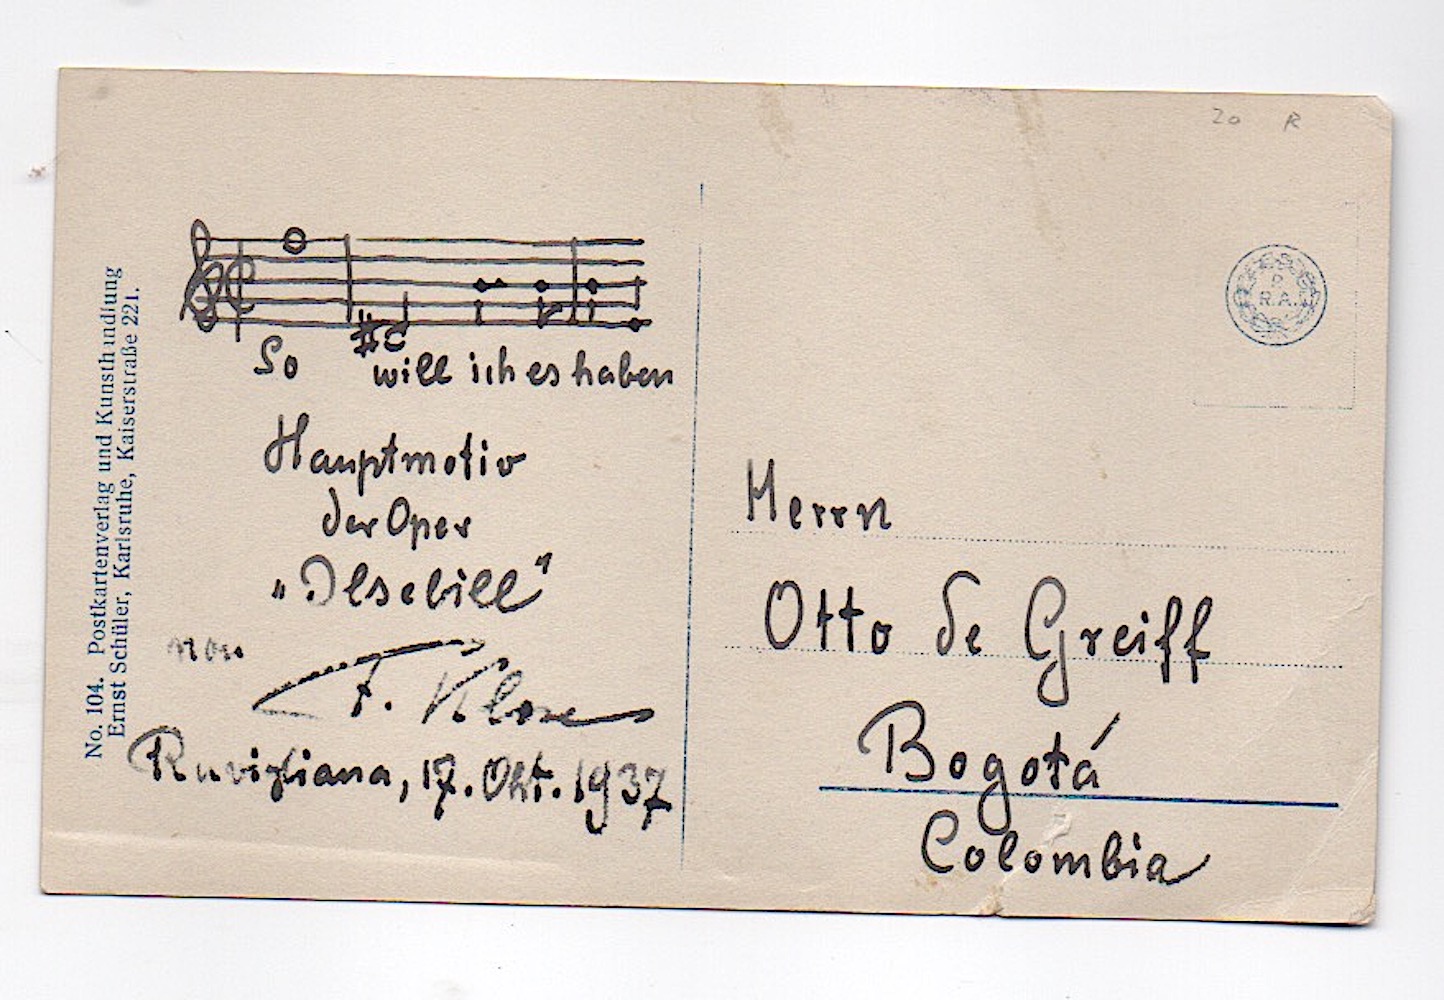 20 R
So will ich es haben
Hauptmotiv
der Oper
„Ilsebill"
von
F. Klose
Ruvigliana, 17. Okt. 1937
No. 104. Postkartenverlag und Kunsthandlung
Ernst Schüler, Karlsruhe, Kaiserstraße 221.
P.
R.A.
Herrn
Otto de Greiff
Bogotá
Colombia